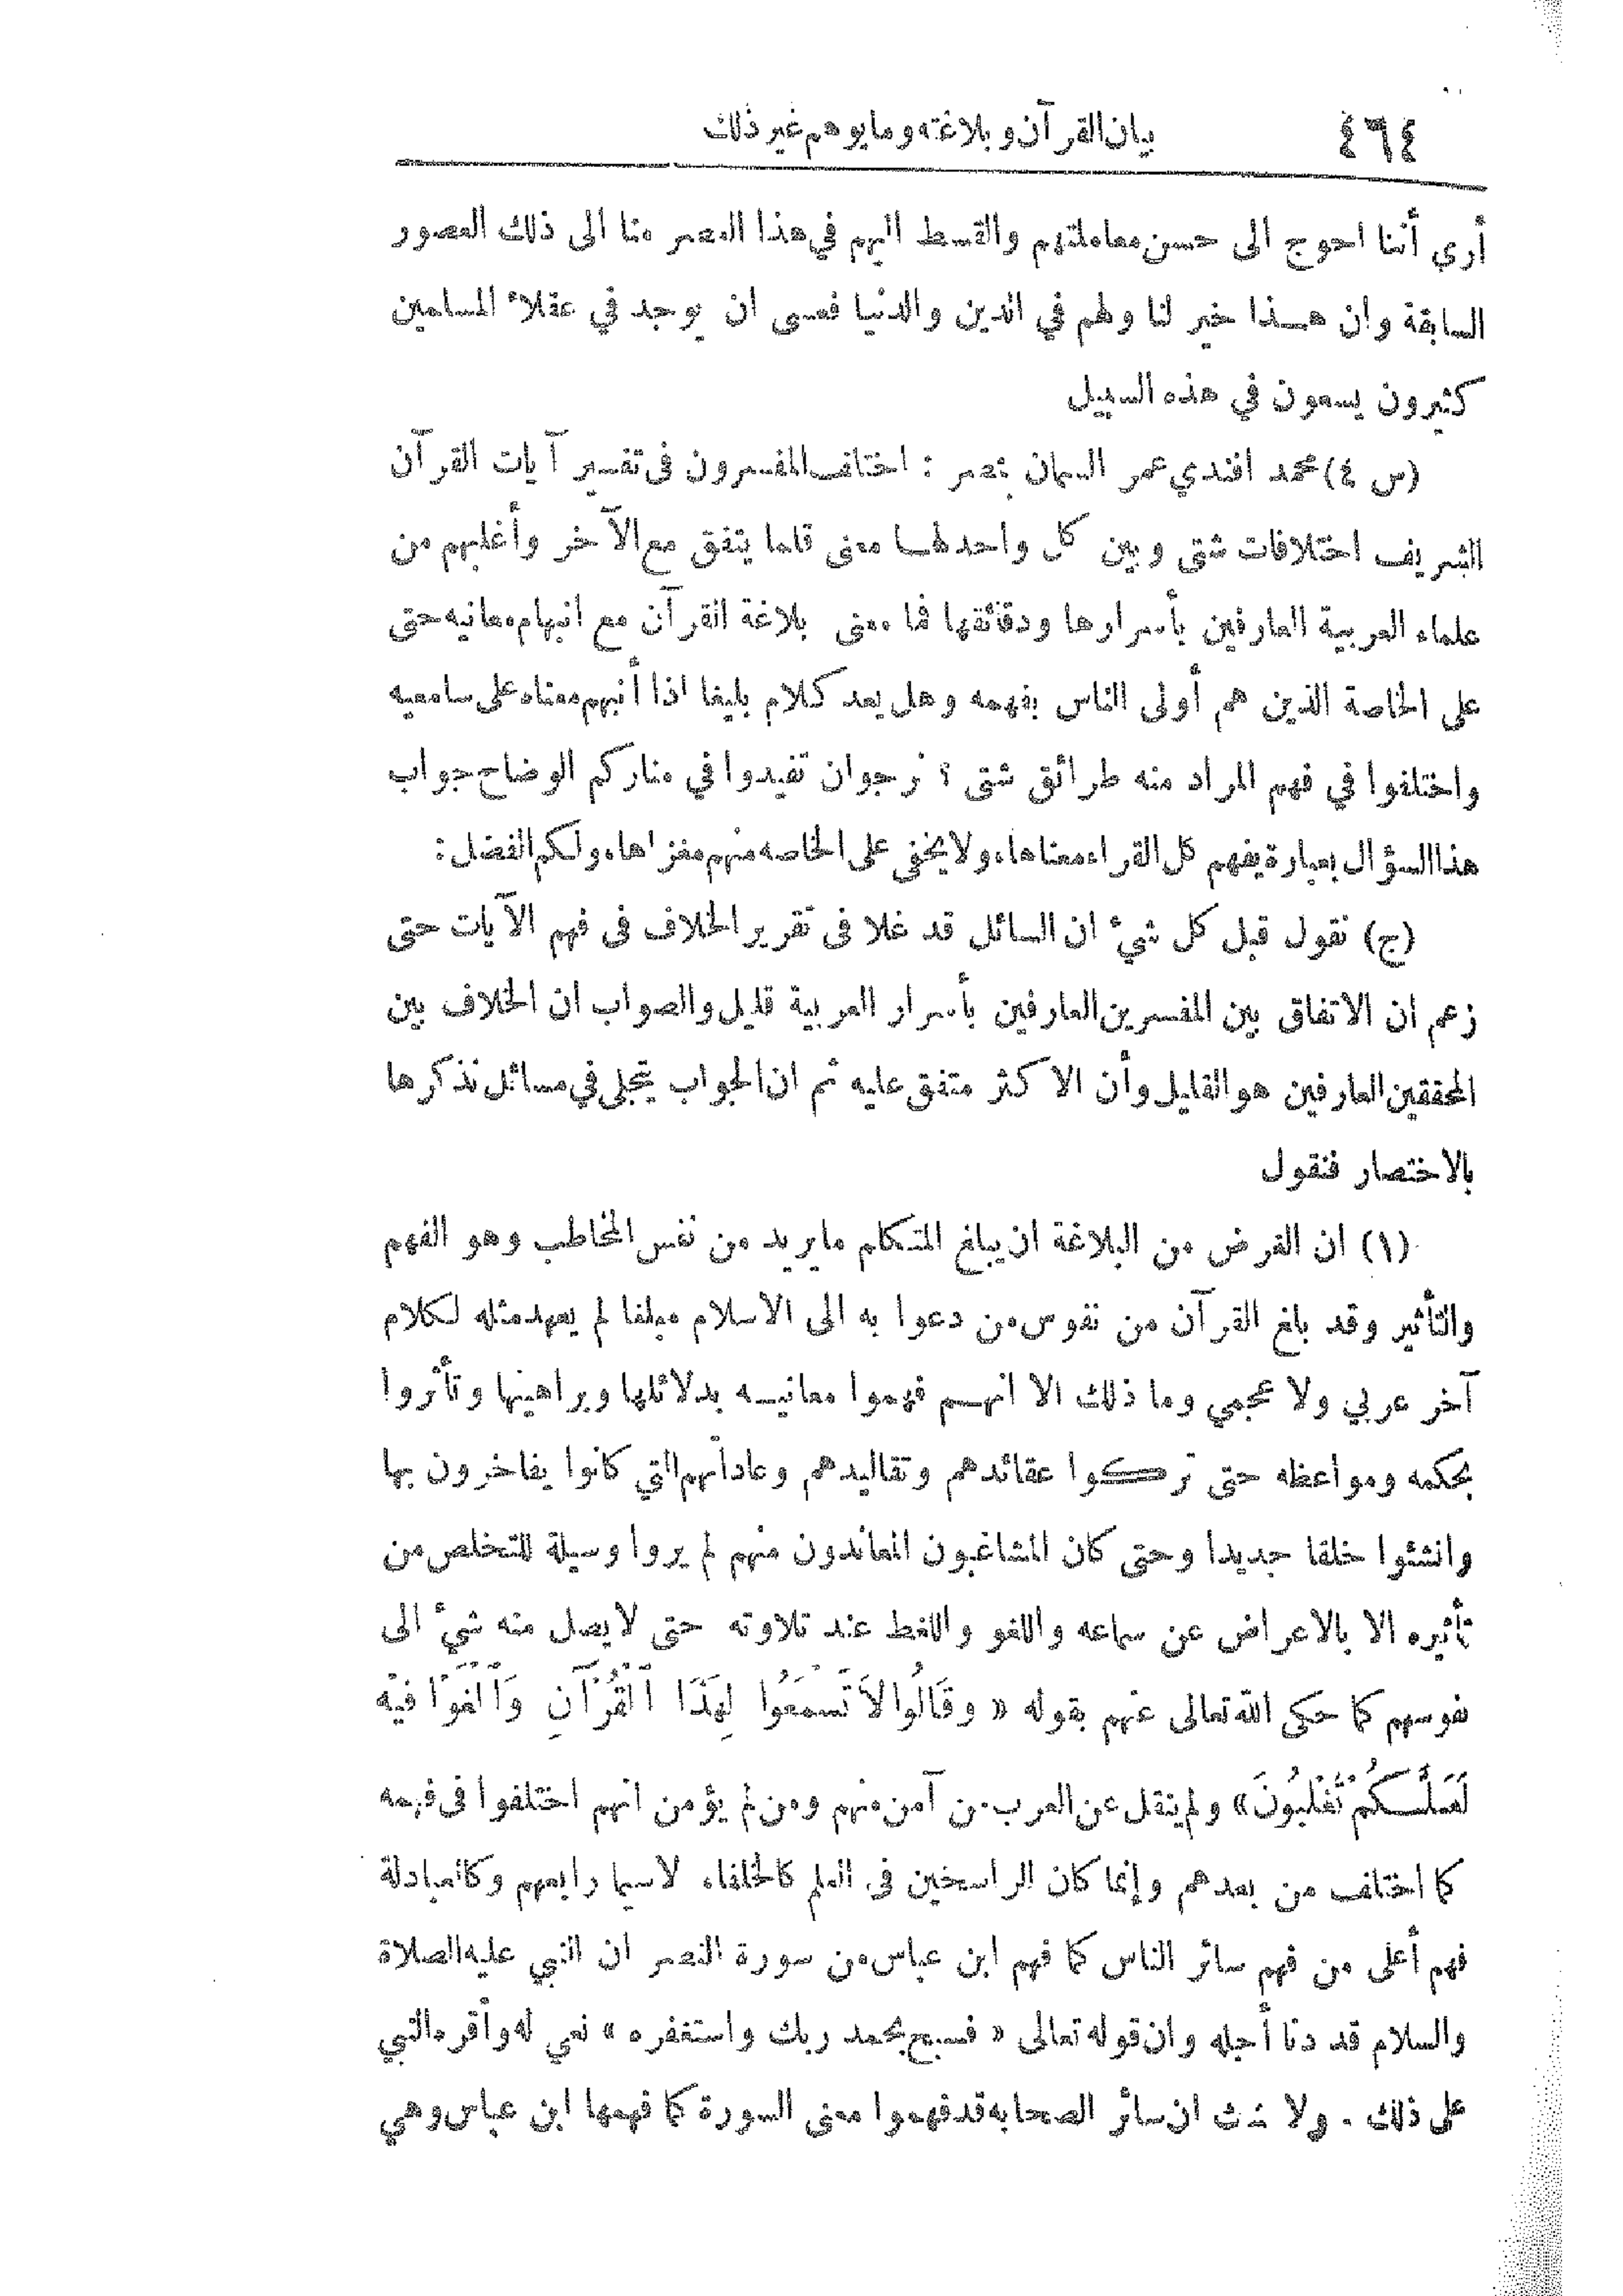 ٤٦٤ بيان القرآن وبلاغته وما يوهم غير ذلك
أرى أننا احوج الى حسن معاملتهم والقسط اليهم في هذا العصر منا الى ذلك العصور
السابقة وان هذا خير لنا ولهم في الدين والدنيا فعسى ان يوجد في عقلاء المسلمين
كثيرون يسعون في هذه السبيل
(س ٤) محمد افندي عمر السمان بمصر : اختلف المفسرون فى تفسير آيات القرآن
الشريف اختلافات شتى وبين كل واحد لها معنى قلما يتفق مع الآخر وأغلبهم من
علماء العربية العارفين بأسرارها ودقائقها فما معنى بلاغة القرآن مع انبهام معانيه حتى
على الخاصة الذين هم أولى الناس بفهمه وهل يعد كلام بليغا اذا أنبهم معناه على سامعيه
واختلفوا في فهم المراد منه طرائق شتى ؟ نرجوان تفيدوا في مناركم الوضاح جواب
هذا السؤال بعبارة يفهم كل القراء معناها، ولا يخفى على الخاصه منهم مغزاها، ولكم الفضل :
(ج) نقول قبل كل شيء ان السائل قد غلا فى تقرير الخلاف فى فهم الآيات حتى
زعم ان الاتفاق بين المفسرين العارفين بأسرار العربية قليل والصواب ان الخلاف بين
المحققين العارفين هو القليل وأن الاكثر متفق عليه ثم ان الجواب يتجلى في مسائل نذكرها
بالاختصار فنقول
(١) ان الغرض من البلاغة ان يبلغ المتكلم ما يريد من نفس المخاطب وهو الفهم
والتأثير وقد بلغ القرآن من نفوس من دعوا به الى الاسلام مبلغا لم يعهد مثله لكلام
آخر عربي ولا عجمي وما ذلك الا انهم فهموا معانيه بدلائلها وبراهينها وتأثروا
بحكمه ومواعظه حتى تركوا عقائدهم وتقاليدهم وعاداتهم التي كانوا يفاخرون بها
وانشئوا خلقا جديدا وحتى كان المشاغبون المعاندون منهم لم يروا وسيلة للتخلص من
تأثيره الا بالاعراض عن سماعه واللغو واللغط عند تلاوته حتى لا يصل منه شيء الى
نفوسهم كما حكى الله تعالى عنهم بقوله « وقَالُوا لاَ تَسْمَعُوا لِهَذَا ٱلْقُرْآنِ وَٱلْغَوْا فيْهِ
لَعَلَّكُمْ تَغْلِبُونَ» ولم ينقل عن العرب من آمن منهم ومن لم يؤمن انهم اختلفوا فى فهمه
كما اختلف من بعدهم وإنما كان الراسخين فى العلم كالخلفاء لاسيما رابعهم وكالعبادلة
فهم أعلى من فهم سائر الناس كما فهم ابن عباس من سورة النصر ان النبي عليه الصلاة
والسلام قد دنا أجله وان قوله تعالى « فسبح بحمد ربك واستغفره » نعي له وأقره النبي
على ذلك . ولا شك ان سائر الصحابه قد فهموا معنى السورة كما فهمها ابن عباس وهي